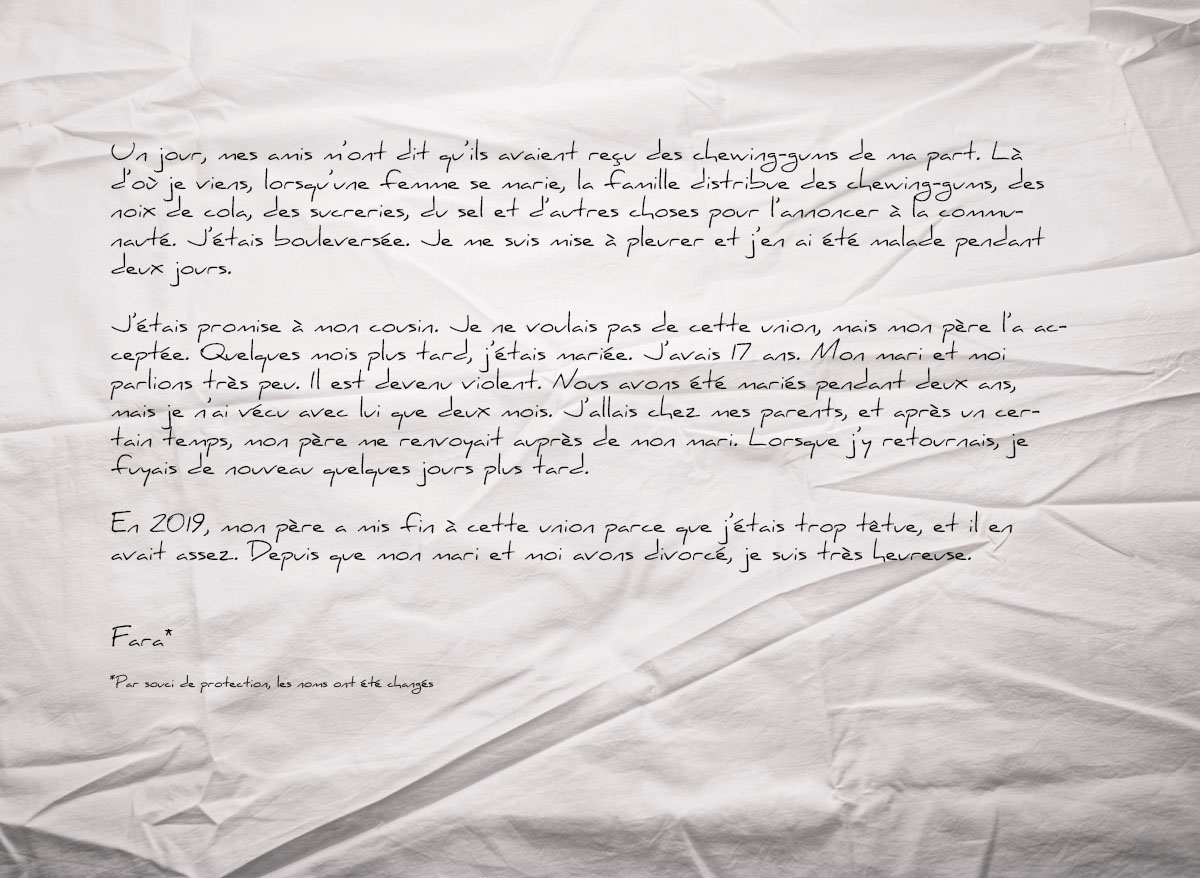 Un jour, mes amis m'ont dit qu'ils avaient reçu des chewing-gums de ma part. Là
d'où je viens, lorsqu'une femme se marie, la famille distribue des chewing-gums, des
noix de cola, des sucreries, du sel et d'autres choses pour l'annoncer à la commu-
nauté. J'étais bouleversée. Je me suis mise à pleurer et j'en ai été malade pendant
deux jours.

J'étais promise à mon cousin. Je ne voulais pas de cette union, mais mon père l'a ac-
ceptée. Quelques mois plus tard, j'étais mariée. J'avais 17 ans. Mon mari et moi
parlions très peu. Il est devenu violent. Nous avons été mariés pendant deux ans,
mais je n'ai vécu avec lui que deux mois. J'allais chez mes parents, et après un cer-
tain temps, mon père me renvoyait auprès de mon mari. Lorsque j'y retournais, je
fuyais de nouveau quelques jours plus tard.

En 2019, mon père a mis fin à cette union parce que j'étais trop têtue, et il en
avait assez. Depuis que mon mari et moi avons divorcé, je suis très heureuse.

Fara*

*Par souci de protection, les noms ont été changés